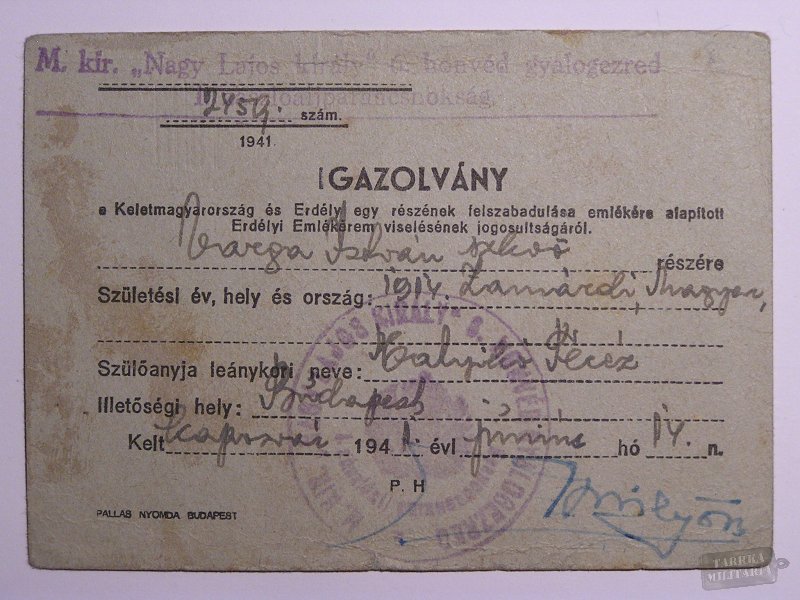 M. kir. „Nagy Lajos király" 6. honvéd gyalogezred
2459. szám.
1941
IGAZOLVÁNY
a Keletmagyarország és Erdély egy részének felszabadulása emlékére alapított
Erdélyi Emlékérem viselésének jogosultságáról.
Varga István részére
Születési év, hely és ország: 1914. Zamárdi, Magyar,
Szülőanyja leánykori neve: Teréz
Illetőségi hely: Budapest
Kelt Kaposvár 1941. évi június hó 14. n.
P. H
PALLAS NYOMDA BUDAPEST
TABRKA
MILITARIA